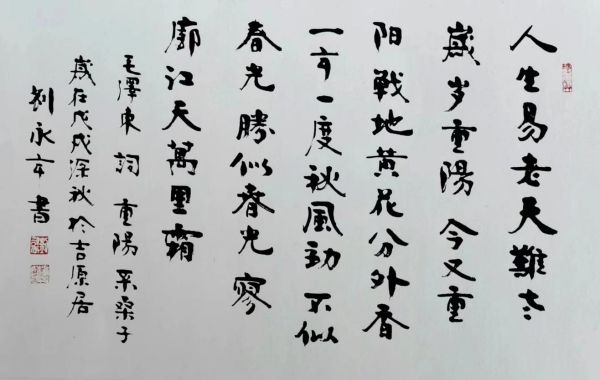 人生易老天難老
歲岁重陽今又重
阳戰地黄花分外香
一年一度秋風劲不似
春光勝似春光寥
廓江天萬里霜
毛澤東詞重陽采桑子
歲在戊戌深秋於吉原居
劉永年書